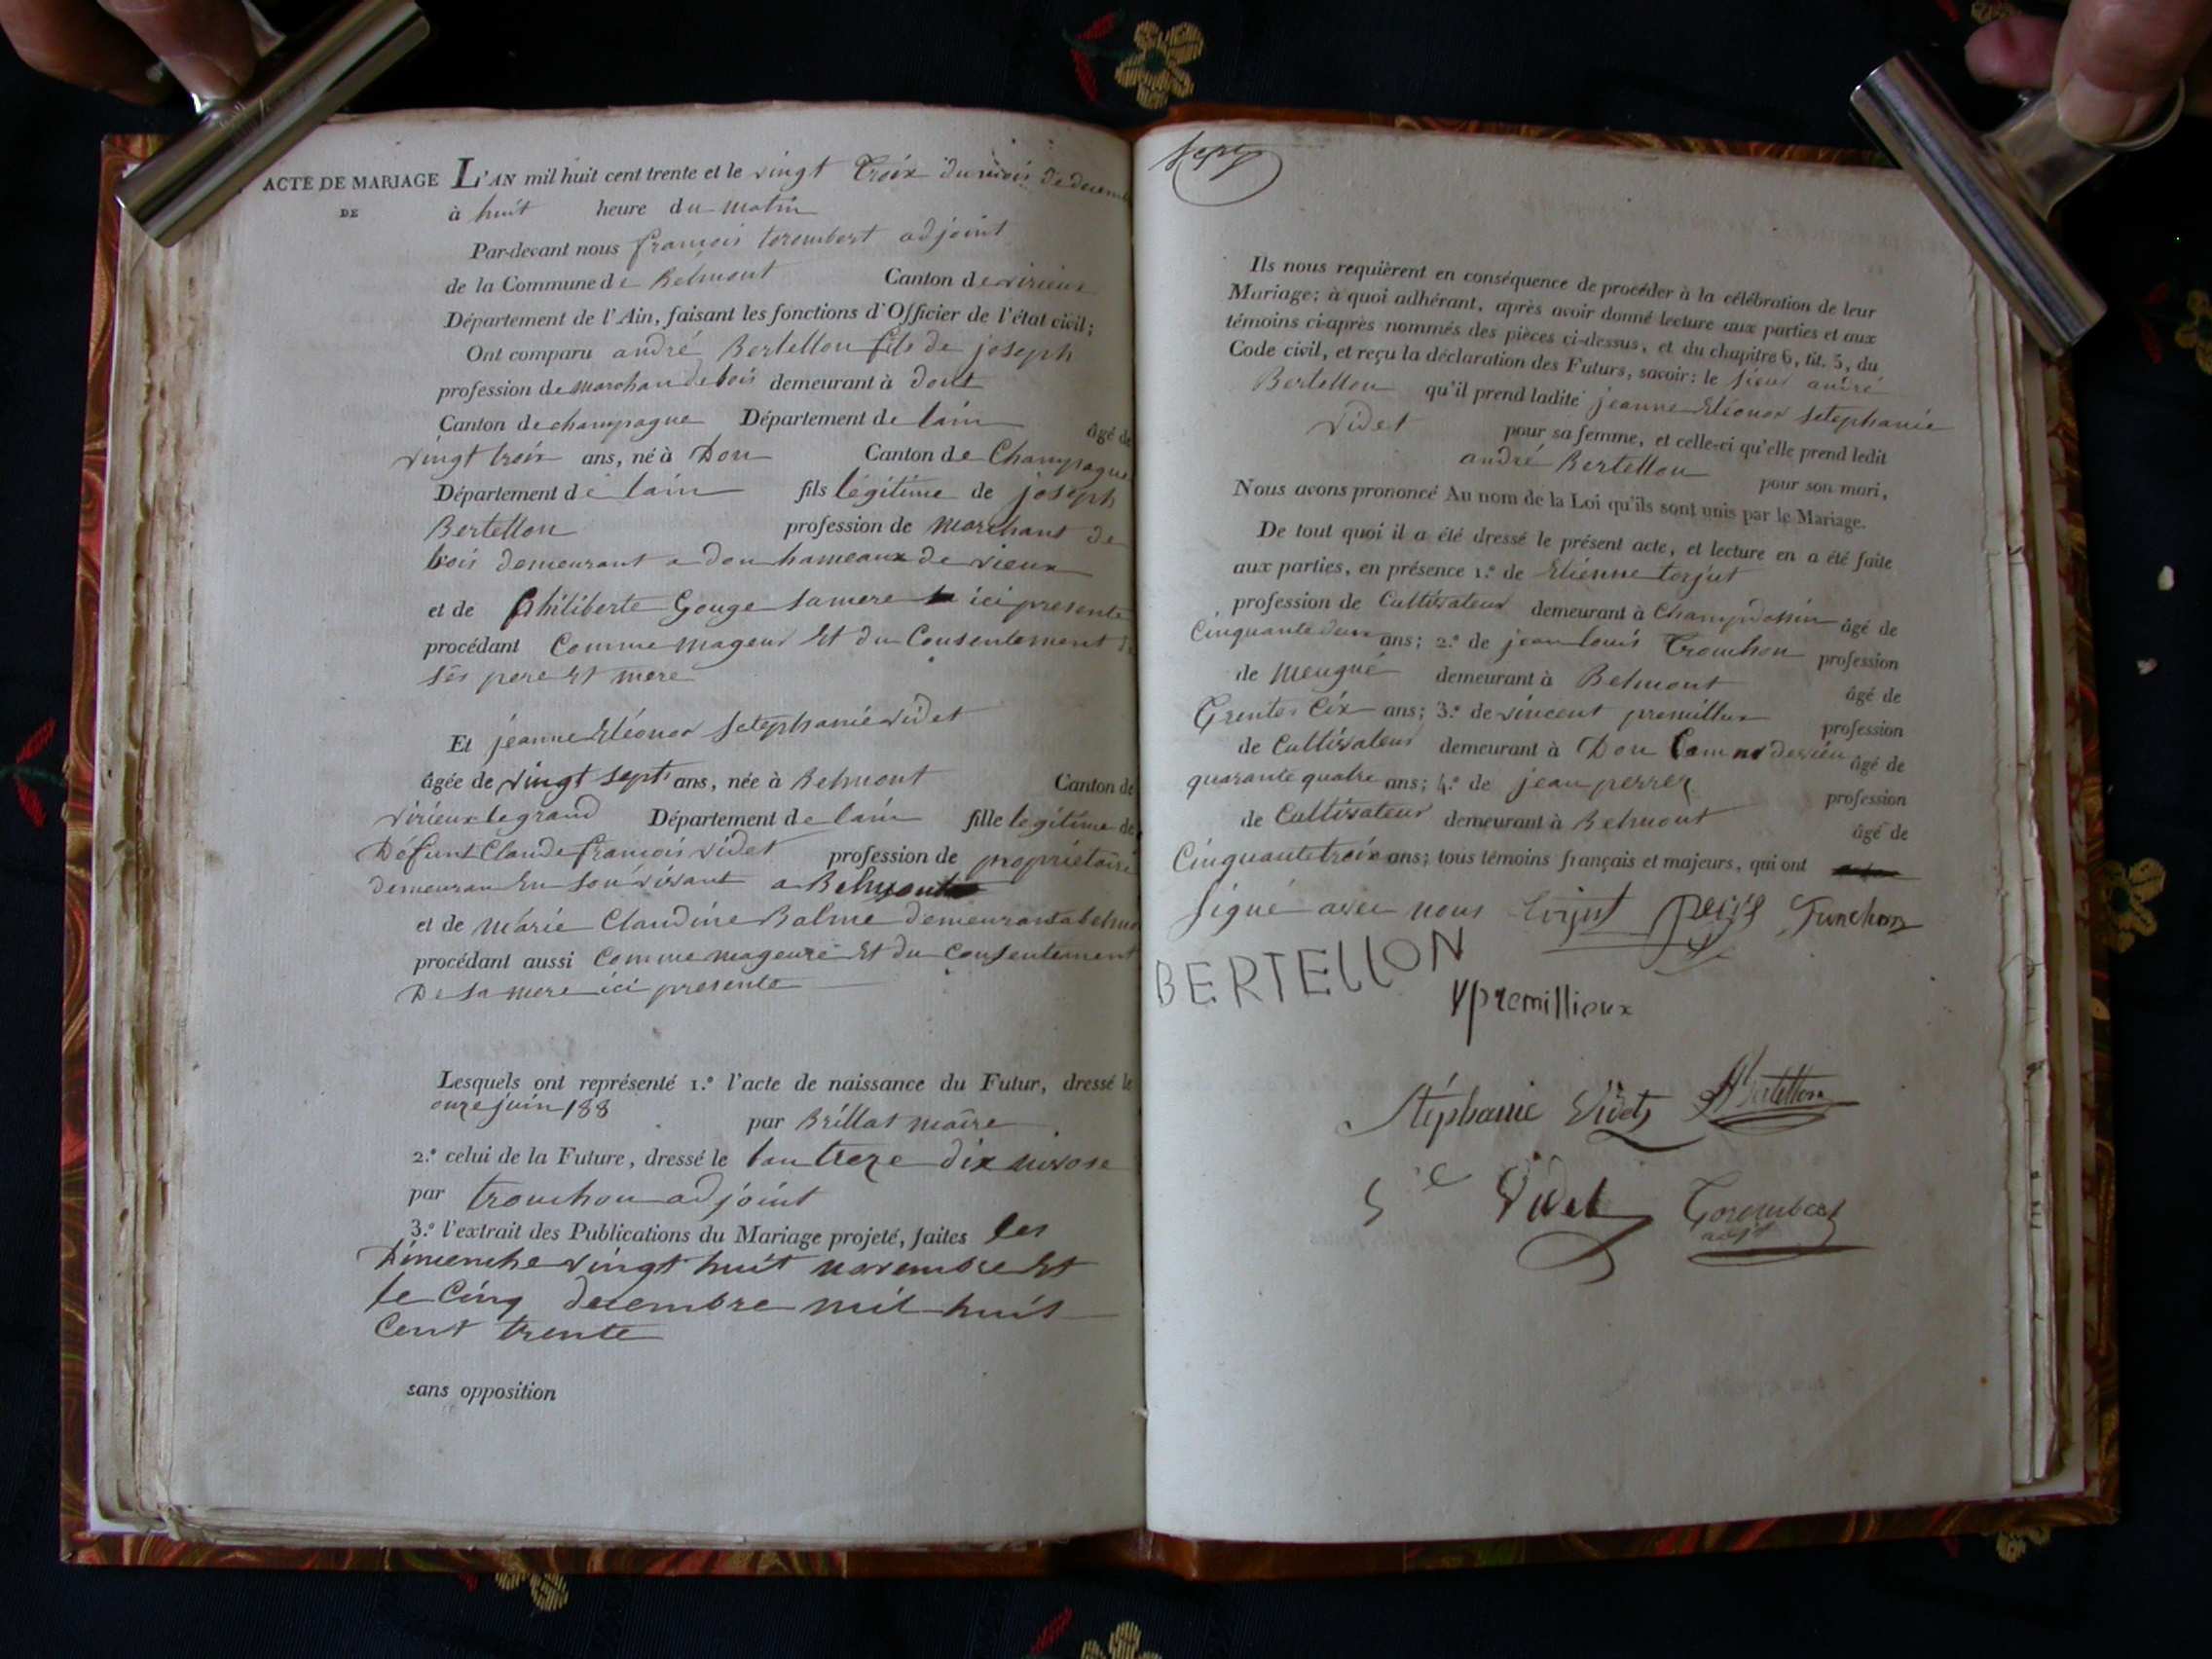 ACTE DE MARIAGE
DE
L'AN mil huit cent trente et le vingt troix du mois de decemb
à huit heure du matin
Par-devant nous françois torombert adjoint
de la Commune de Belmont Canton de virieux
Département de l'Ain, faisant les fonctions d'Officier de l'état civil;
Ont comparu andré Bertellon fils de joseph
profession de marchan de bois demeurant à dont
Canton de champagne Département de lain âgé de
vingt troix ans, né à Don Canton de Champagne
Département de lain fils légitime de joseph
Bertellon profession de marchant de
bois demeurant a don hameaux de vieux
et de philiberte Gouge sa mere ici presente
procédant comme mageur Et du Consentement de
ses pere Et mere
Et jeanne Eléonor Setephanie videt
âgée de vingt sept ans, née à Belmont Canton de
virieux legrand Département de lain fille légitime de
Défunt Claude françois videt profession de propriétaire
demeuran En son vivant a Belmont
et de marie Claudine Balme demeurant a belmo
procédant aussi Comme mageure Et du Consentement
De sa mere ici presente
Lesquels ont représenté 1.° l'acte de naissance du Futur, dressé le
onze juin 188 par Brillat maire
2.° celui de la Future, dressé le lan treze dix nivose
par trouchon adjoint
3.° l'extrait des Publications du Mariage projeté, faites les
Dimenche vingt huit novembre Et
le Cinq decembre mil huit
Cent trente
sans opposition
Sept
Ils nous requièrent en conséquence de procéder à la célébration de leur
Mariage; à quoi adhérant, après avoir donné lecture aux parties et aux
témoins ci-après nommés des pièces ci-dessus, et du chapitre 6, tit. 5, du
Code civil, et reçu la déclaration des Futurs, savoir: le sieur andré
Bertellon qu'il prend ladite jeanne Eléonor Setephanie
videt pour sa femme, et celle-ci qu'elle prend ledit
andré Bertellon pour son mari,
Nous avons prononcé Au nom de la Loi qu'ils sont unis par le Mariage.
De tout quoi il a été dressé le présent acte, et lecture en a été faite
aux parties, en présence 1.° de Etienne torjut
profession de Cultivateur demeurant à Champdossin âgé de
Cinquante deux ans; 2.° de jean louis trouchon profession
de meugné demeurant à Belmont âgé de
trente Cix ans; 3.° de vincent premillux profession
de Cultivateur demeurant à Don âgé de
quarante quatre ans; 4.° de jean perret profession
de Cultivateur demeurant à Belmont âgé de
Cinquante troix ans; tous témoins français et majeurs, qui ont
signé avec nous torjut Trunchon
BERTELLON
Vpremillieux
Stéphanie Videt Bertellon
Videt Torombert
adjt